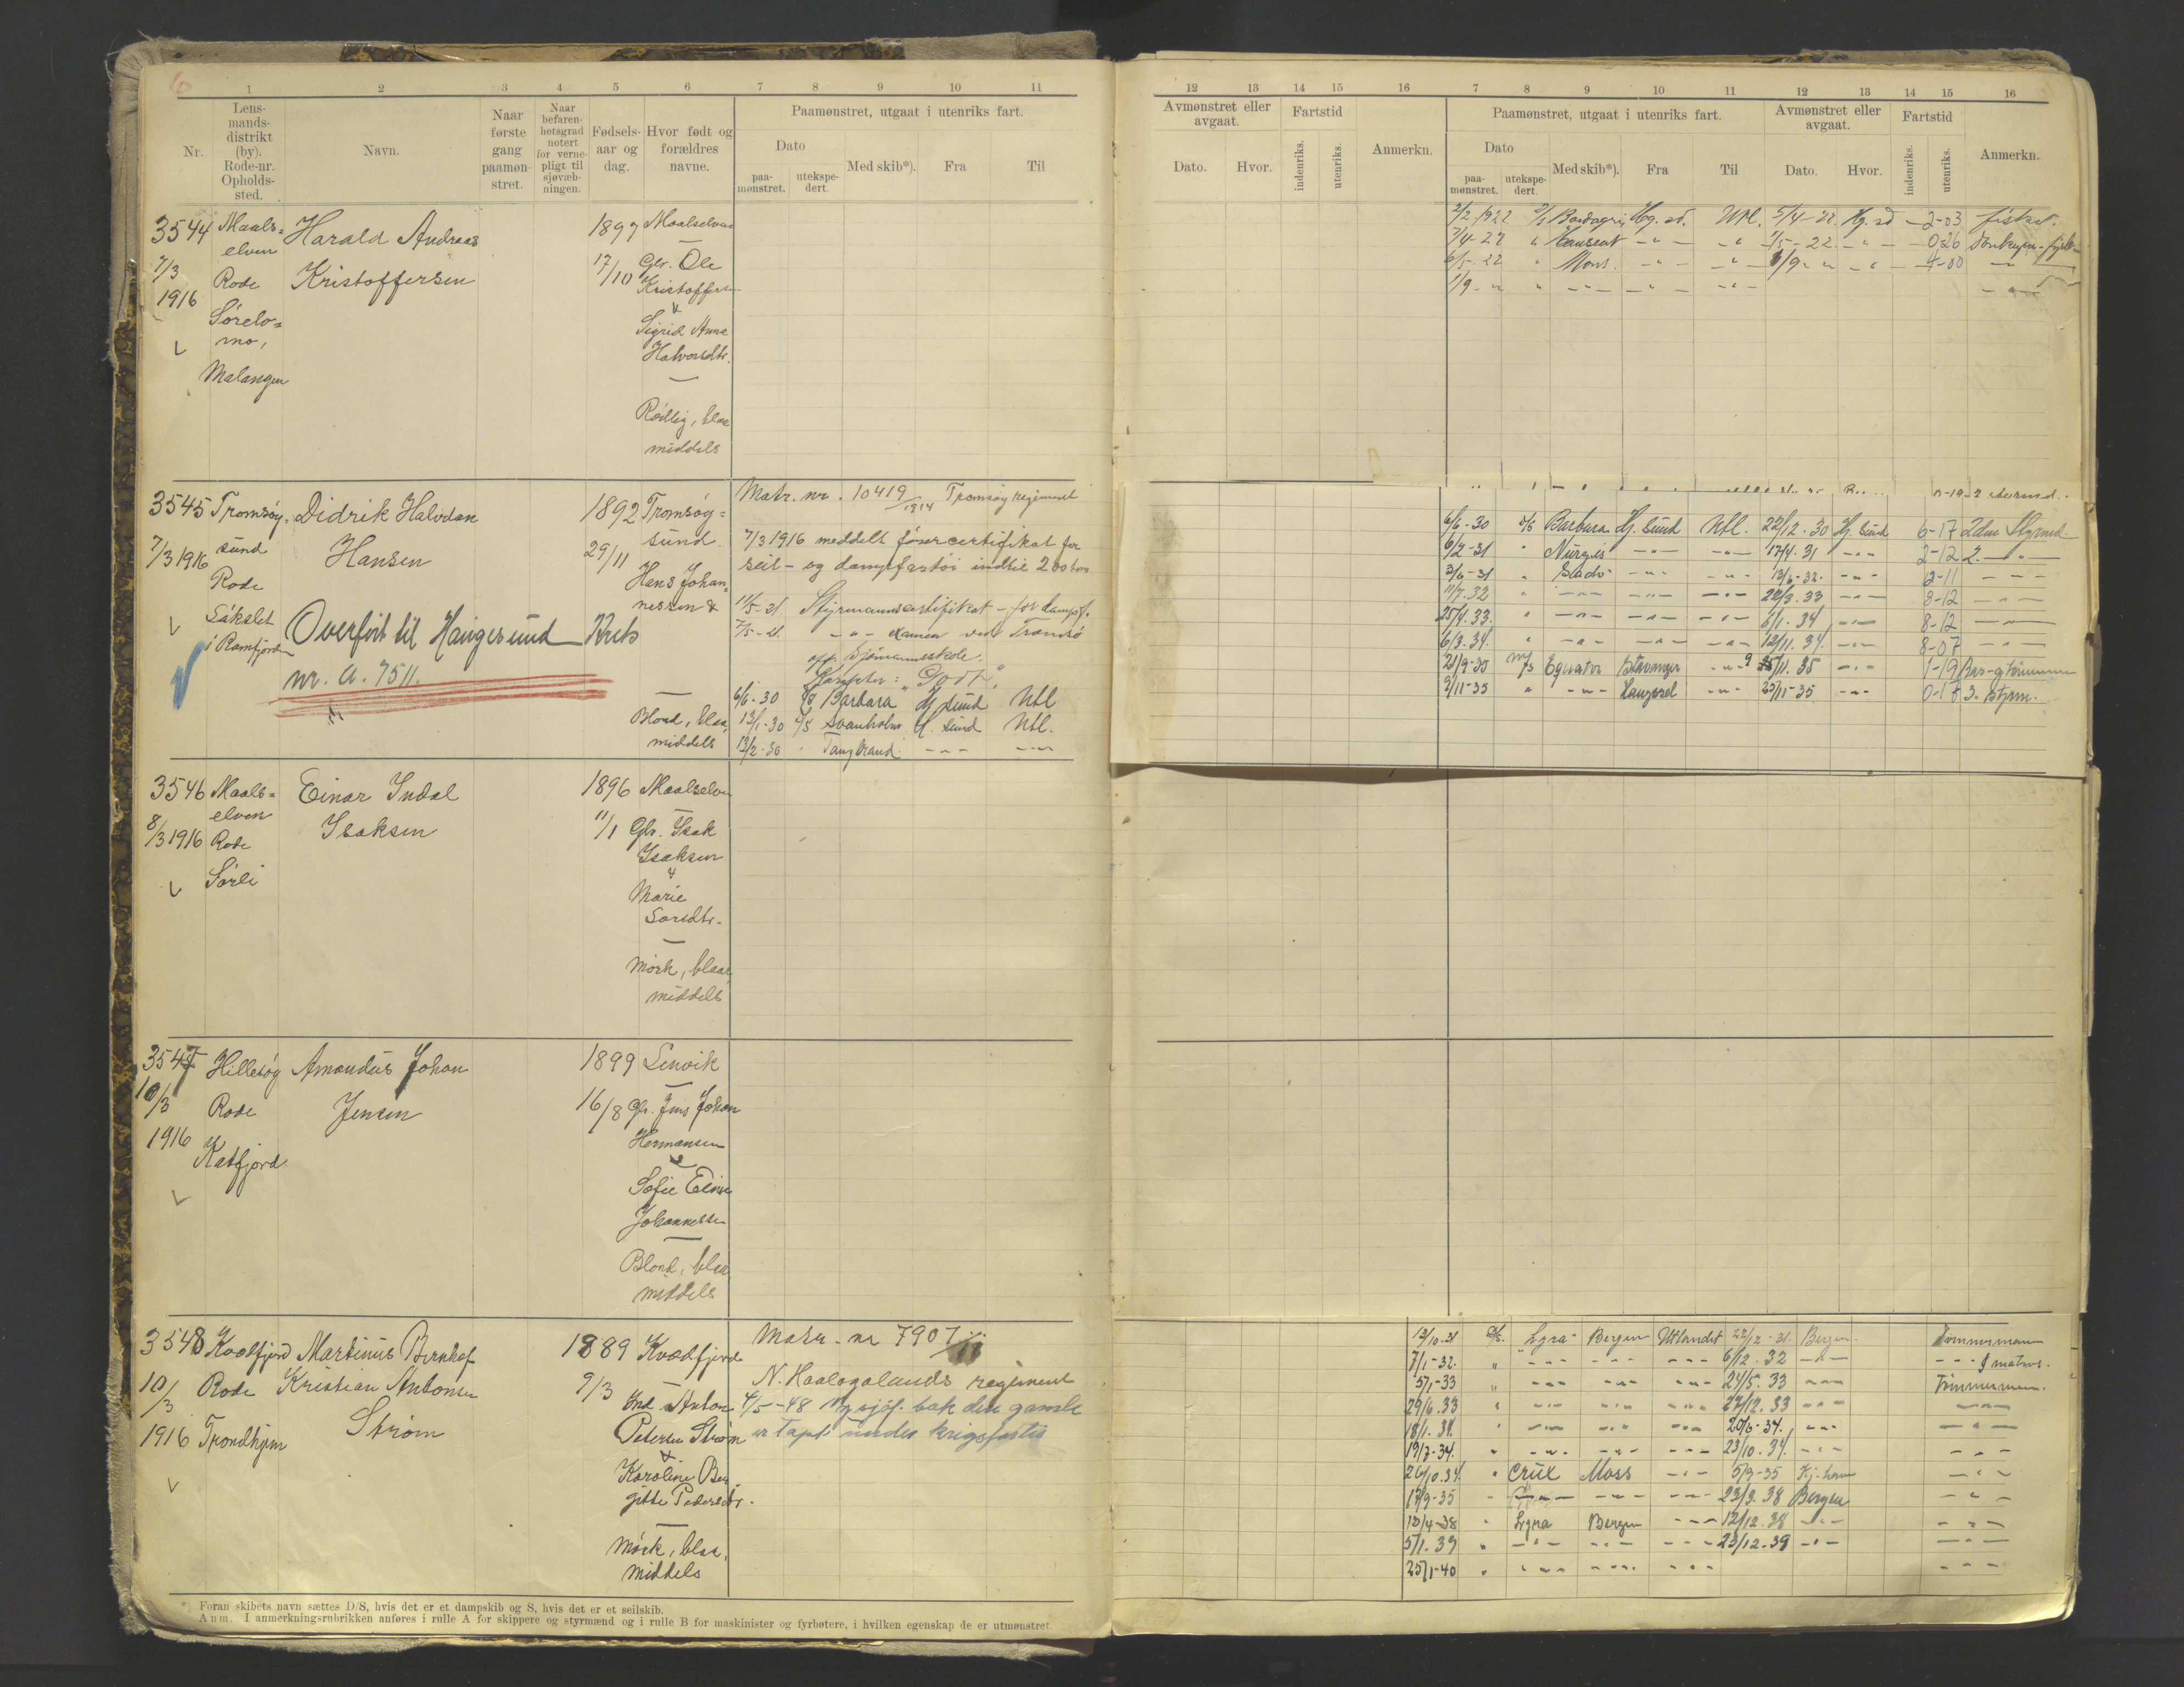 6
1 2 3 4 5 6 7 8 9 10 11
Nr.
Lens-
mands-
distrikt
(by).
Rode-nr.
Opholds-
sted.
Navn.
Naar
første
gang
paamøn-
stret.
Naar
befaren-
hetsgrad
notert
for verne-
pligt til
sjøvæb-
ningen.
Fødsels-
aar og
dag.
Hvor født og
forældres
navne.
Paamønstret, utgaat i utenriks fart.
Dato
paa-
mønstret.
utekspe-
dert.
Med skib*).
Fra
Til
3544 Maals=
elven
7/3
1916
Rode
Sørelv=
mo,
Malangen
Harald Andreas
Kristoffersen
1897
17/10
Maalselven
Gbr. Ole
Kristoffersen
&
Sigrid Anna
Halvorsdtr.
Rødlig, blaa
middels
3545 Tromsøy=
sund
7/3 1916
Rode
i Ramfjorden
Didrik Halvdan
Hansen
Overført til Haugesund Krets
nr. a. 7511.
1892
29/11
Tromsøy=
sund.
Hans Johan=
nessen &
Blond, blaa,
middels
Matr. nr. 10419/1914 Tromsøy regiment
7/3 1916 meddelt førercertifikat for
seil- og dampfartøi indtil 200 tons
11/5-21. Styrmannscertifikat - for dampf.
7/5-21. -"- examen ved Tromsø
off. Sjømannsskole.
Karakter: "Godt"
6/6-30 D/S Barbara Hg sund Utl
13/1-30 D/S Svanholm H. sund Utl.
13/2-30 " Tangbrand -"- -"-
3546 Maals=
elven
8/3 1916 Rode
Sørli
Einar Indal
Isaksen
1896
11/1
Maalselven
Gbr. Isak
Isaksen
&
Marie
Larsdtr.
Mørk, blaa,
middels
3547 Hillesøy
10/3
1916
Rode
Katfjord
Amandus Johan
Jensen
1899
16/8
Lenvik
Gbr. Jens Johan
Hermansen
&
Sofie Eline
Johannesen
Blond, blaa,
middels
3548 Kvædfjord
10/3
1916
Rode
Trondhjem
Martinus Bernhof
Kristian Antonsen
Strøm
1889
9/3
Kvædfjord
Ind. Anton
Petersen Strøm
&
Karoline Ber
gitte Pedersdtr.
Mørk, blaa,
middels
Matr. nr 7907/11
N. Haalogalands regiment
4/5-48 Ny sjøf. bok den gamle
er tapt under krigsforlis
*) Foran skibets navn sættes D/S, hvis det er et dampskib og S, hvis det er et seilskib.
Anm. I anmerkningsrubrikken anføres i rulle A for skippere og styrmænd og i rulle B for maskinister og fyrbøtere, i hvilken egenskap de er utmønstret.
12 13 14 15 16 7 8 9 10 11 12 13 14 15 16
Avmønstret eller
avgaat.
Dato.
Hvor.
Fartstid
indenriks.
utenriks.
Anmerkn.
Paamønstret, utgaat i utenriks fart.
Dato
paa-
mønstret.
utekspe-
dert.
Med skib*).
Fra
Til
Avmønstret eller
avgaat.
Dato.
Hvor.
Fartstid
indenriks.
utenriks.
Anmerkn.
2/2-1922 Hg. sd. Utl. 5/4-22 Hg. sd 2-03
7/4-22 " -"- -"- 1/5-22 -"- 0-26
6/5-22 " Mons. -"- -"- 1/9 -"- -"- 4-00 -"-
1/9-" " -"- -"- -"- -"-
6/6-30 D/S Barbara Hg. sund Utl. 22/12-30 Hg sund 6-17 2den Styrmd.
6/2-31 " -"- -"- 17/4-31 -"- 2-12 2. -"-
3/6-31 " -"- -"- 13/6-32. -"- 12-11 -"-
11/7.32 " -"- -"- -"- 22/3.33 -"- 8-12 -"-
25/4.33. " -"- -"- -"- 6/1.34 -"- 8-12 -"-
6/3.34. " -"- -"- -"- 12/11.34. -"- 8-07 -"-
21/9-35 M/S Equator Stavanger -"- 9/11.35 -"- 1-19
9/11-35 " -"- Haugesd -"- 25/11-35 -"- 0-17 3. styrm.
13/10.31 D/S. Lyra Bergen Utlandet 22/12-31. Bergen. Tømmermann
7/1-32. " -"- -"- -"- 6/12.32 -"- -"- & matros.
5/1-33 " -"- -"- -"- 24/5.33 -"- Tømmermann.
29/6.33 " -"- -"- -"- 27/12.33 -"- -"-
18/1.34. " -"- -"- -"- 20/6-34. -"- -"-
19/7-34. " -"- -"- -"- 23/10.34. -"- -"-
26/10.34. " Crux Moss -"- 5/9-35 Kj.havn -"-
17/9-35 " -"- -"- -"- 23/3.38 Bergen -"-
10/4-38 " Lyra Bergen -"- 12/12.38 -"- -"-
5/1.39 " -"- -"- -"- 23/12-39 -"- -"-
25/1-40 " -"- -"- -"- -"-